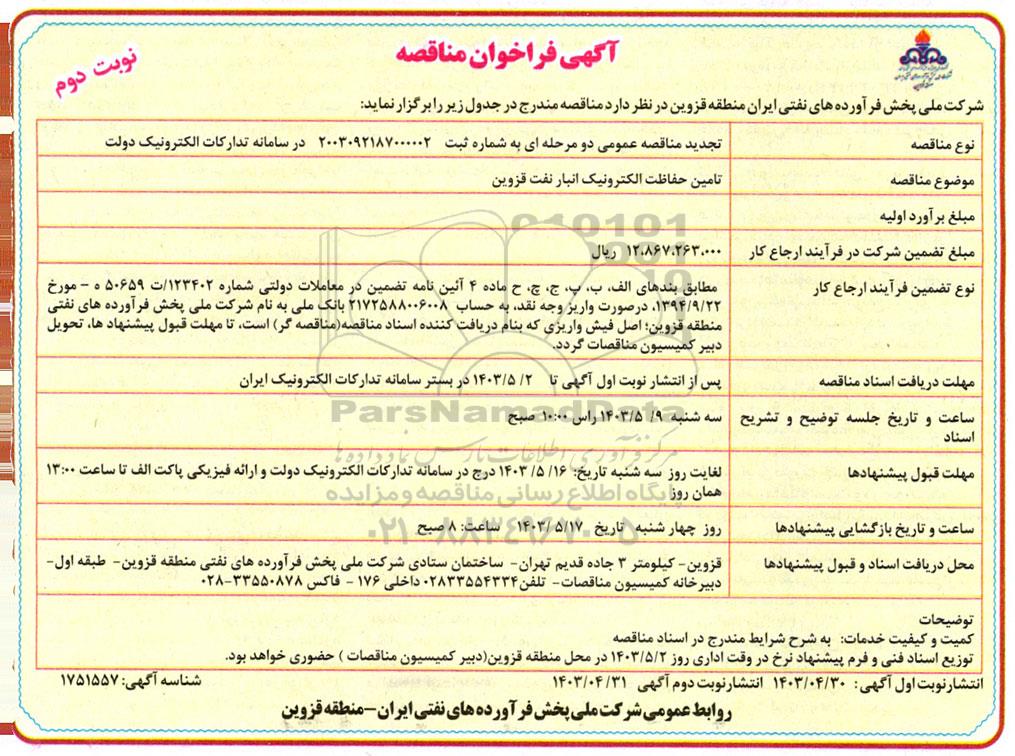 آگهی فراخوان مناقصه
نوبت دوم
شرکت ملی پخش فرآورده های نفتی ایران منطقه قزوین در نظر دارد مناقصه مندرج در جدول زیر را برگزار نماید:
نوع مناقصه
تجدید مناقصه عمومی دو مرحله ای به شماره ثبت ۲۰۰۳۰۹۲۱۸۷۰۰۰۰۰۲ در سامانه تدارکات الکترونیک دولت
موضوع مناقصه
تامین حفاظت الکترونیک انبار نفت قزوین
مبلغ برآورد اولیه
مبلغ تضمین شرکت در فرآیند ارجاع کار
۱۲.۸۶۷.۲۶۳.۰۰۰ ریال
نوع تضمین فرآیند ارجاع کار
مطابق بندهای الف، ب، پ، ج، چ، ح ماده ۴ آئین نامه تضمین در معاملات دولتی شماره ۱۲۳۴۰۲/ت ۵۰۶۵۹ ه – مورخ
۱۳۹۴/۹/۲۲، درصورت واریز وجه نقد، به حساب ۲۱۷۲۵۸۸۰۰۶۰۰۸ بانک ملی به نام شرکت ملی پخش فرآورده های نفتی
منطقه قزوین؛ اصل فیش واریزی که بنام دریافت کننده اسناد مناقصه(مناقصه گر) است، تا مهلت قبول پیشنهاد ها، تحویل
دبیر کمیسیون مناقصات گردد.
مهلت دریافت اسناد مناقصه
پس از انتشار نوبت اول آگهی تا ۲/ ۱۴۰۳/۵ در بستر سامانه تدارکات الکترونیک ایران
ساعت و تاریخ جلسه توضیح و تشریح
اسناد
سه شنبه ۹/ ۱۴۰۳/۵ راس ۱۰:۰۰ صبح
مهلت قبول پیشنهادها
لغایت روز سه شنبه تاریخ: ۱۶/ ۵/ ۱۴۰۳ درج در سامانه تدارکات الکترونیک دولت و ارائه فیزیکی پاکت الف تا ساعت ۱۳:۰۰
همان روز
ساعت و تاریخ بازگشایی پیشنهادها
روز چهار شنبه تاریخ ۱۴۰۳/۵/۱۷ ساعت: ۸ صبح
محل دریافت اسناد و قبول پیشنهادها
قزوین- کیلومتر ۳ جاده قدیم تهران- ساختمان ستادی شرکت ملی پخش فرآورده های نفتی منطقه قزوین- طبقه اول-
دبیرخانه کمیسیون مناقصات- تلفن۰۲۸۳۳۵۵۴۳۳۴ داخلی ۱۷۶ - فاکس ۳۳۵۵۰۸۷۸-۰۲۸
توضیحات
کمیت و کیفیت خدمات: به شرح شرایط مندرج در اسناد مناقصه
توزیع اسناد فنی و فرم پیشنهاد نرخ در وقت اداری روز ۱۴۰۳/۵/۲ در محل منطقه قزوین(دبیر کمیسیون مناقصات ) حضوری خواهد بود.
انتشارنوبت اول آگهی: ۱۴۰۳/۰۴/۳۰ انتشارنوبت دوم آگهی ۱۴۰۳/۰۴/۳۱
شناسه آگهی: ۱۷۵۱۵۵۷
روابط عمومی شرکت ملی پخش فرآورده های نفتی ایران-منطقه قزوین
ParsNamadData
مرکز فرآوری اطلاعات پارس نماد داده ها
پایگاه اطلاع رسانی مناقصه و مزایده
۰۲۱-۸۸۳۴۹۶۷۰-۵